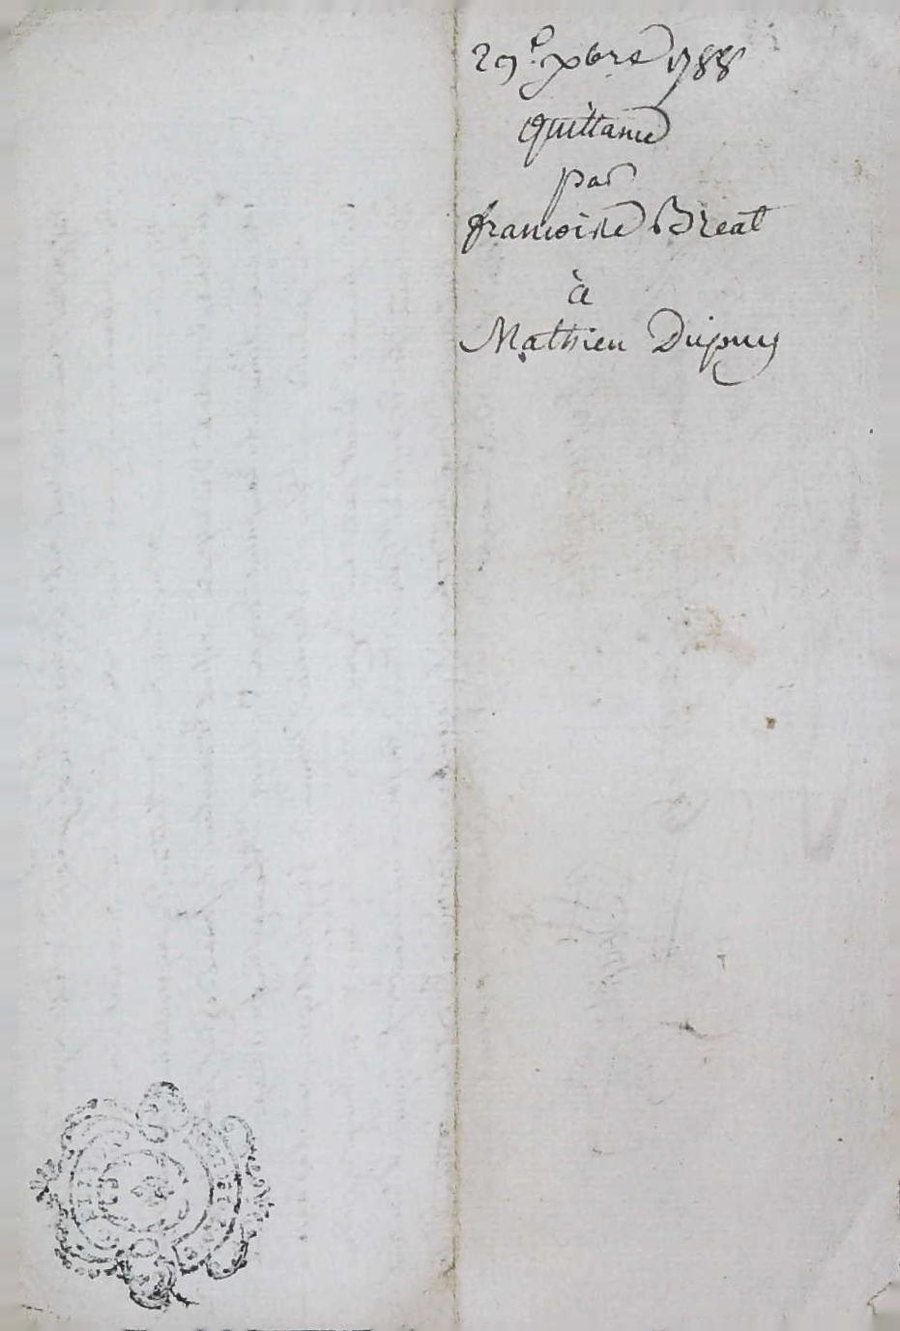 29e. xbre 1788
Quittance
par
francoise Breat
à
Mathieu Dupuy